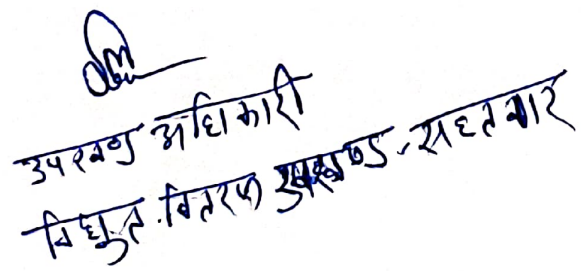 उपखण्ड अधिकारी
विद्युत वितरण उपखण्ड - सहतवार